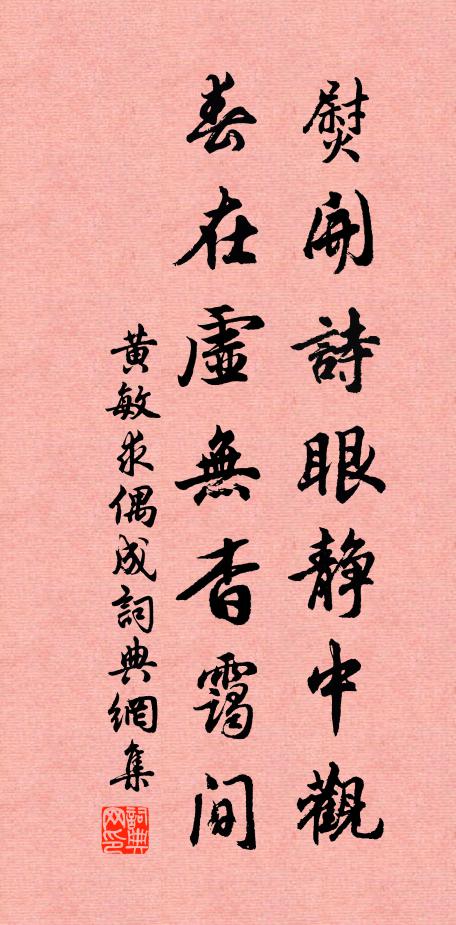 熨開詩眼静中觀
春在虛無杳靄間
黄敏求偶成詞典網集
詞典网印